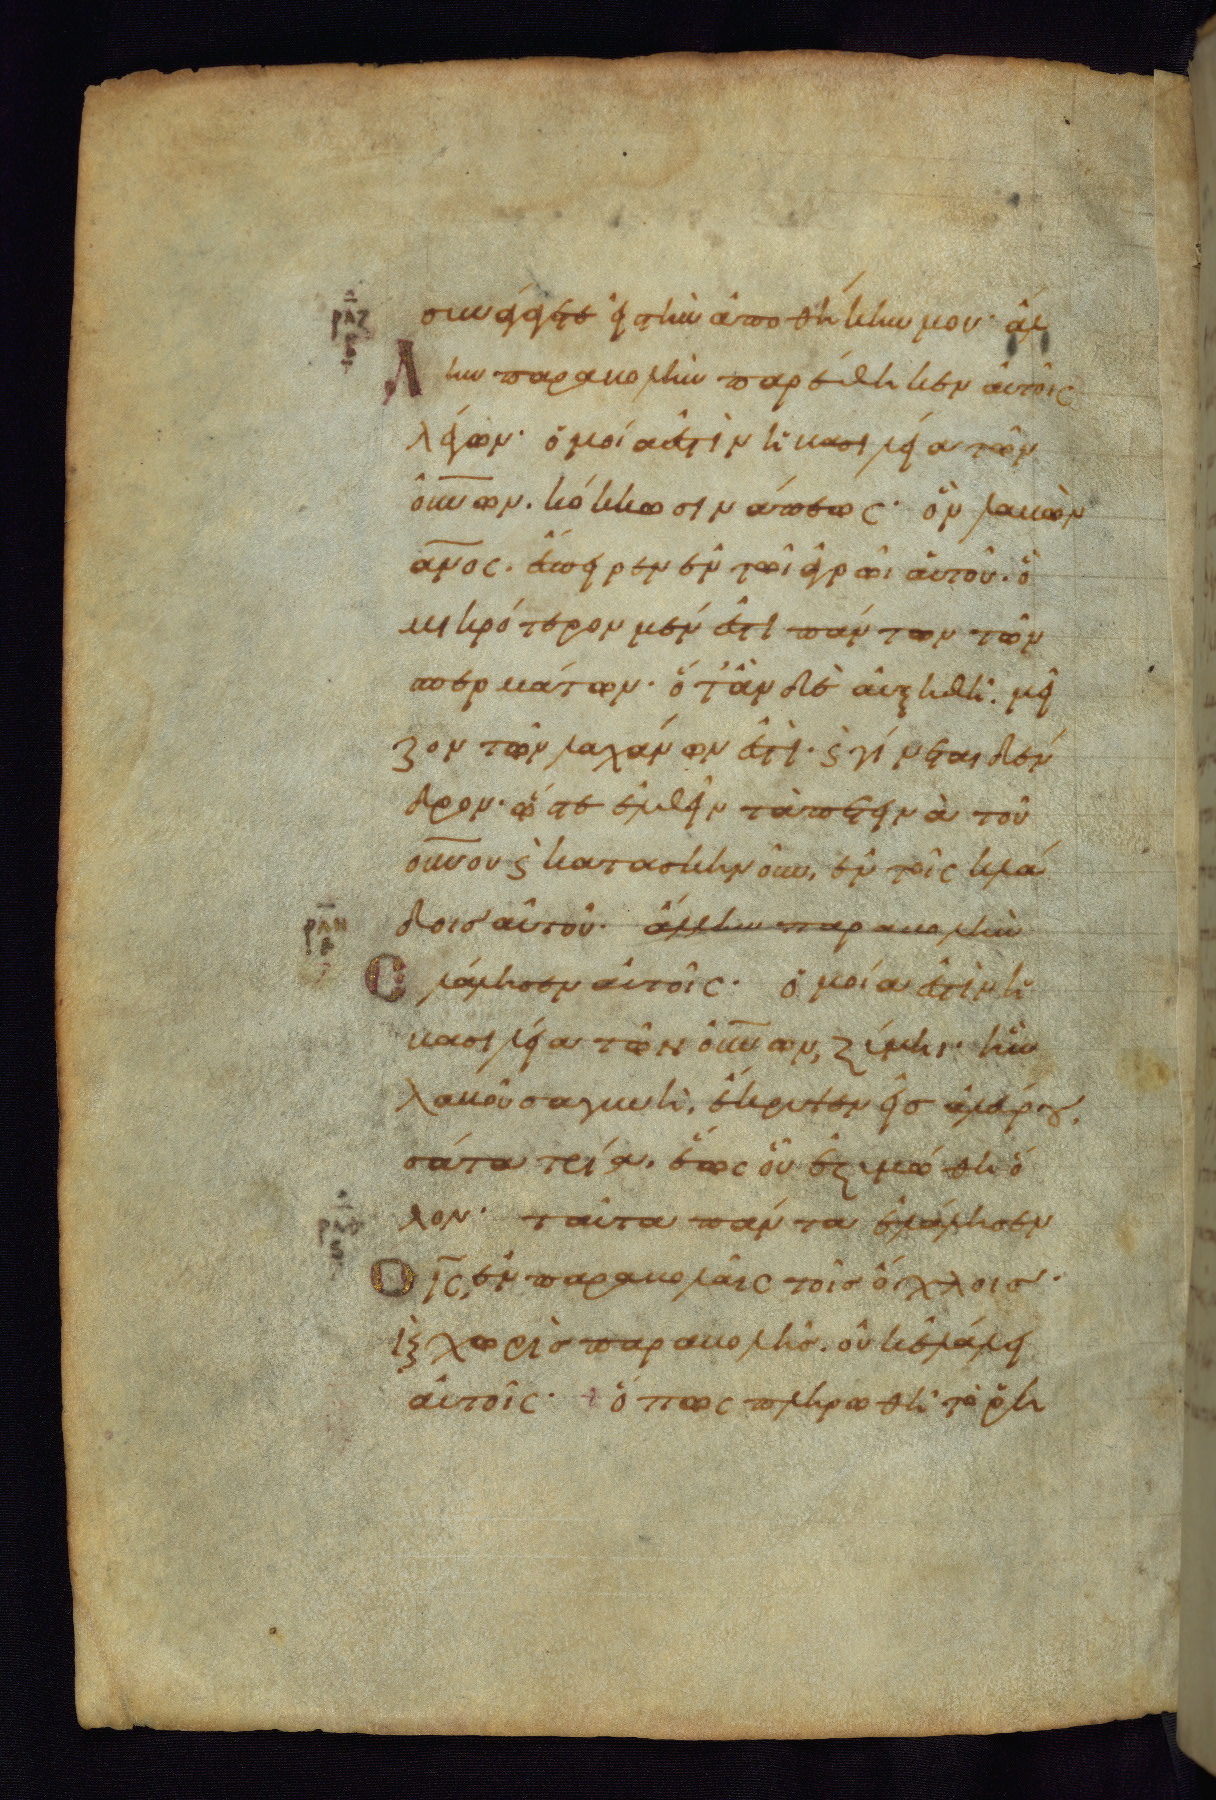 ρλζ
β
συνάγετε εἰς τὴν ἀποθήκην μου· ἄλ
λην παραβολὴν παρέθηκεν αὐτοῖς
λέγων· ὁμοία ἐστὶν ἡ βασιλεία τῶν
οὐνῶν. κόκκωι σινάπεως· ὃν λαβὼν
ἄνος. ἔσπειρεν ἐν τῶι ἀγρῶι αὐτοῦ. ὃ
μικρότερον μέν ἐστι πάντων τῶν
σπερμάτων· ὅτἂν δὲ αὐξηθῆ. μεῖ
ζον τῶν λαχάνων ἐστὶ. ϗ γίνεται δέν
δρον· ὥστε ἐλθεῖν τὰ πετεινὰ τοῦ
οὐνου ϗ κατασκηνοῦν, ἐν τοῖς κλά
ρλη
ε
δοις αὐτοῦ. ἄλλην παραβολὴν
ἐλάλησεν αὐτοῖς. ὁμοία ἐστὶν ἡ
βασιλεία τῶν οὐνῶν, ζύμηι· ἣν
λαβοῦσα γυνὴ, ἔκρυψεν εἰς ἀλεύρου,
σάτα τρία. ἕως οὗ ἐζυμώθη ὅ
ρλθ
ς
λον· ταῦτα πάντα ἐλάλησεν
ὁ ις, ἐν παραβολαῖς τοῖς ὄχλοις.
ϗ χωρὶς παραβολῆς. οὐκ ἐλάλει
αὐτοῖς· ὅπως πληρωθῆ τὸ ῥη